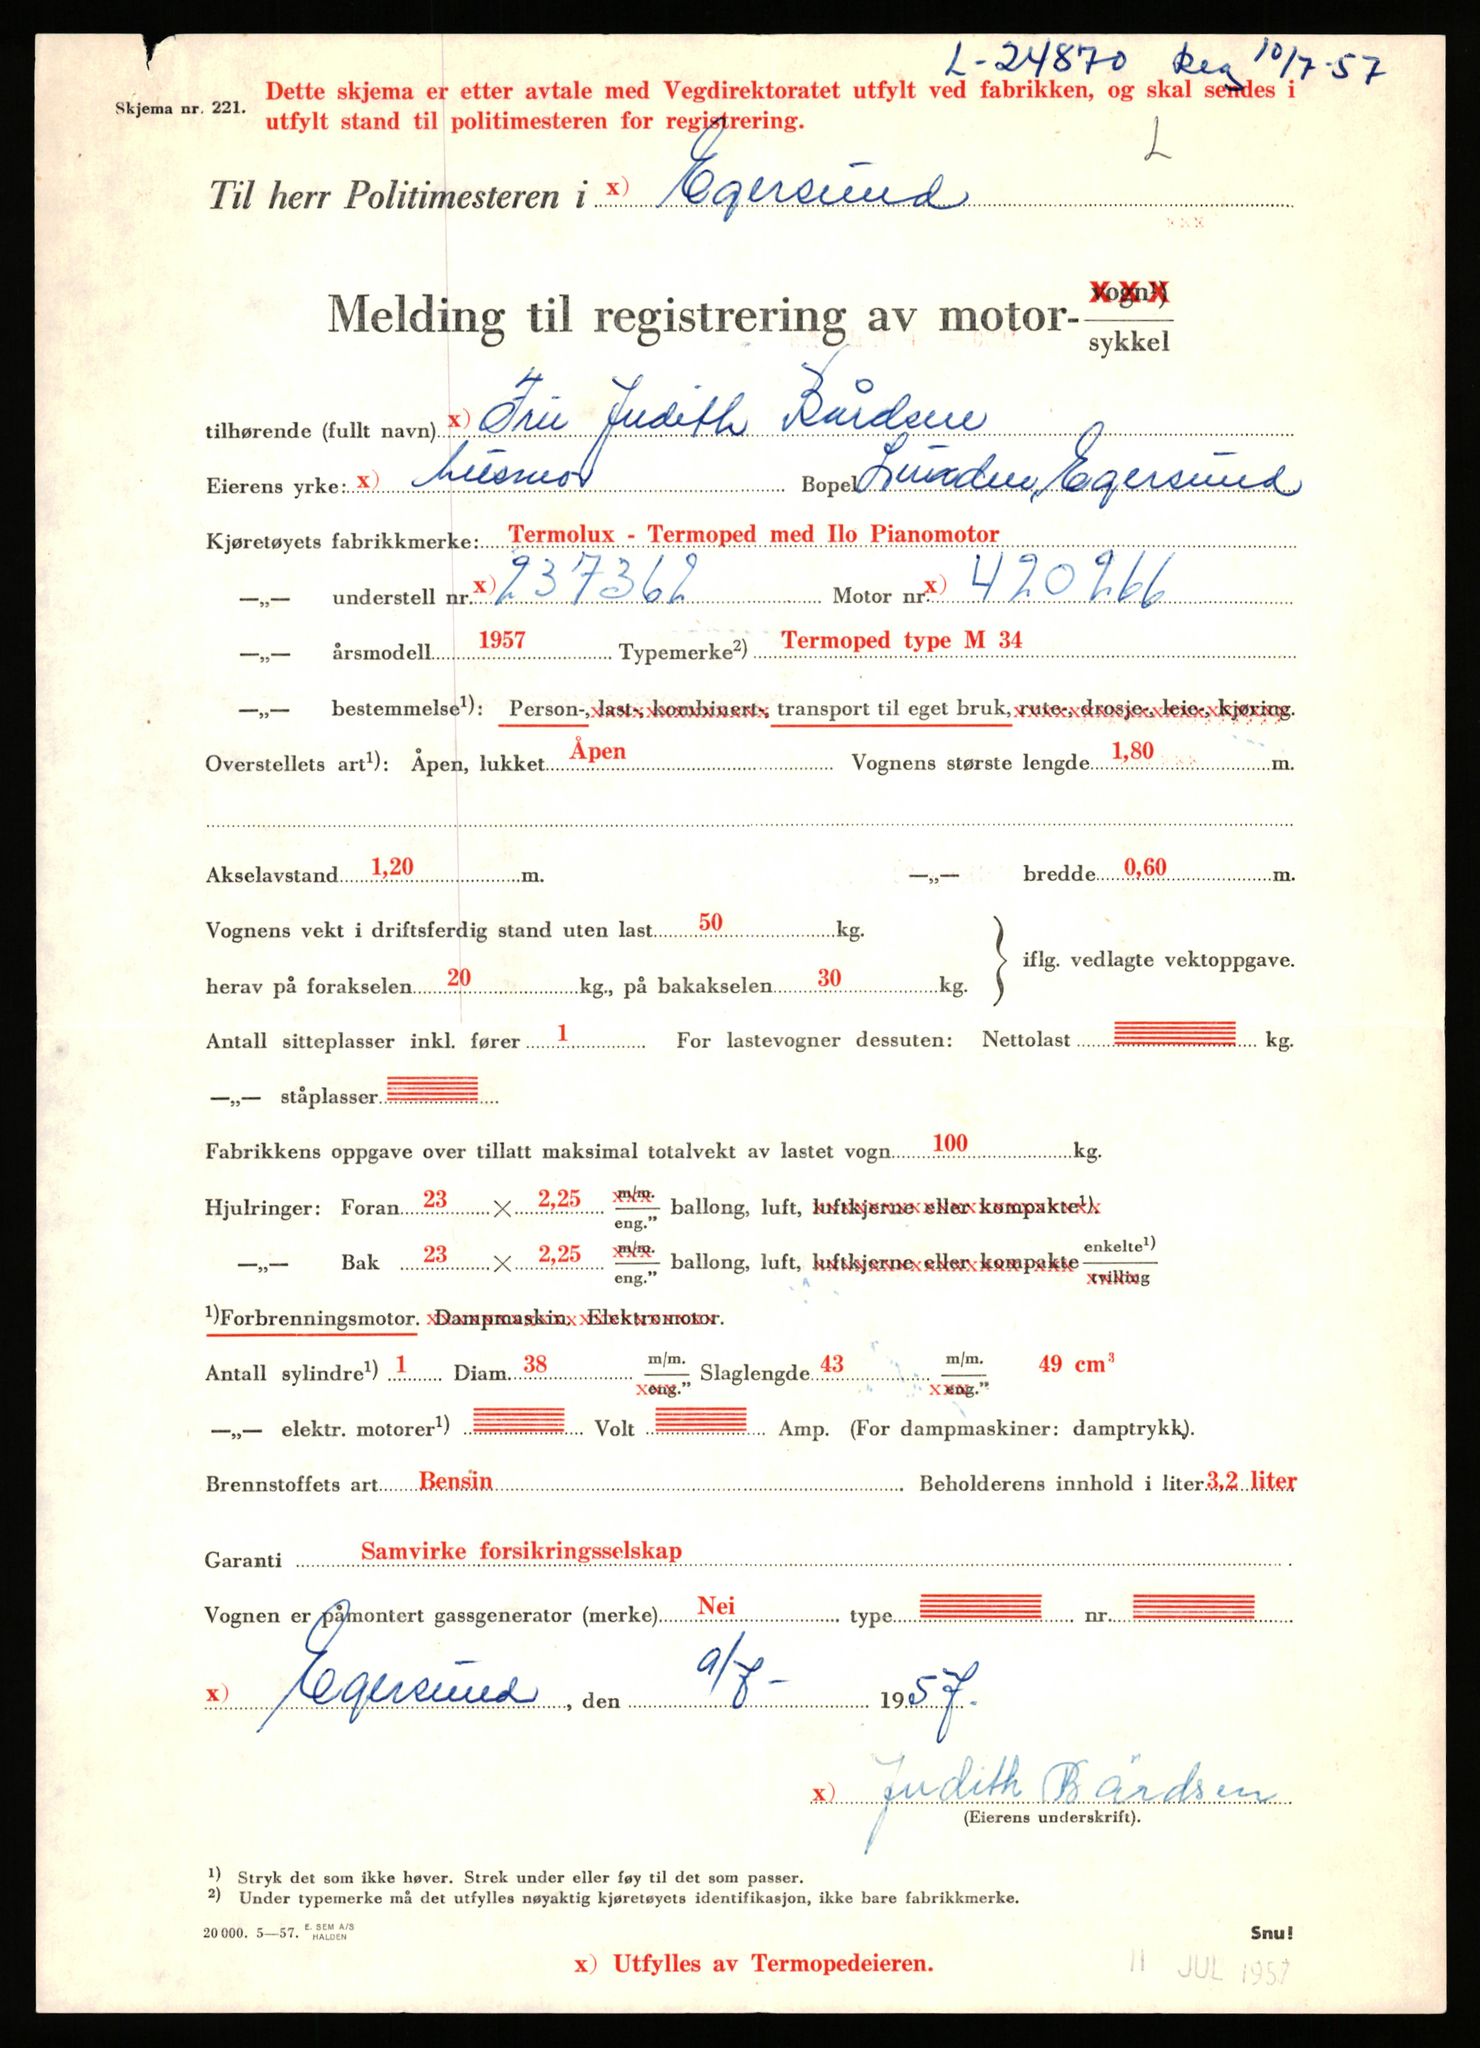 L-24870 Reg 10/7-57
Skjema nr. 221.
Dette skjema er etter avtale med Vegdirektoratet utfylt ved fabrikken, og skal sendes i
utfylt stand til politimesteren for registrering.
L
Til herr Politimesteren i x) Egersund
xxx
Melding til registrering av motor- vogn¹) / sykkel
tilhørende (fullt navn) x) Fru Judith Bårdsen
Eierens yrke: x) husmor Bopel Lunden, Egersund
Kjøretøyets fabrikkmerke: Termolux - Termoped med Ilo Pianomotor
—„— understell nr. x) 237362 Motor nr. x) 420266
—„— årsmodell 1957 Typemerke²) Termoped type M 34
—„— bestemmelse¹): Person-, last-, kombinert-, transport til eget bruk, rute-, drosje-, leie-, kjøring.
Overstellets art¹): Åpen, lukket Åpen Vognens største lengde 1,80 m.
Akselavstand 1,20 m. —„— bredde 0,60 m.
Vognens vekt i driftsferdig stand uten last 50 kg.
iflg. vedlagte vektoppgave.
herav på forakselen 20 kg., på bakakselen 30 kg.
Antall sitteplasser inkl. fører 1 For lastevogner dessuten: Nettolast kg.
—„— ståplasser
Fabrikkens oppgave over tillatt maksimal totalvekt av lastet vogn 100 kg.
Hjulringer: Foran 23 × 2,25 m/m. / eng.” ballong, luft, luftkjerne eller kompakte¹).
—„— Bak 23 × 2,25 m/m. / eng.” ballong, luft, luftkjerne eller kompakte enkelte¹) / tvilling
¹)Forbrenningsmotor. Dampmaskin. Elektromotor.
Antall sylindre¹) 1 Diam. 38 m/m. / eng.” Slaglengde 43 m/m. / eng.” 49 cm³
—„— elektr. motorer¹) Volt Amp. (For dampmaskiner: damptrykk).
Brennstoffets art Bensin Beholderens innhold i liter 3,2 liter
Garanti Samvirke forsikringsselskap
Vognen er påmontert gassgenerator (merke) Nei type nr.
x) Egersund, den 9/7- 1957.
x) Judith Bårdsen
(Eierens underskrift).
¹) Stryk det som ikke høver. Strek under eller føy til det som passer.
²) Under typemerke må det utfylles nøyaktig kjøretøyets identifikasjon, ikke bare fabrikkmerke.
20 000. 5—57. E. SEM A/S HALDEN
Snu!
x) Utfylles av Termopedeieren.
11 JUL 1957